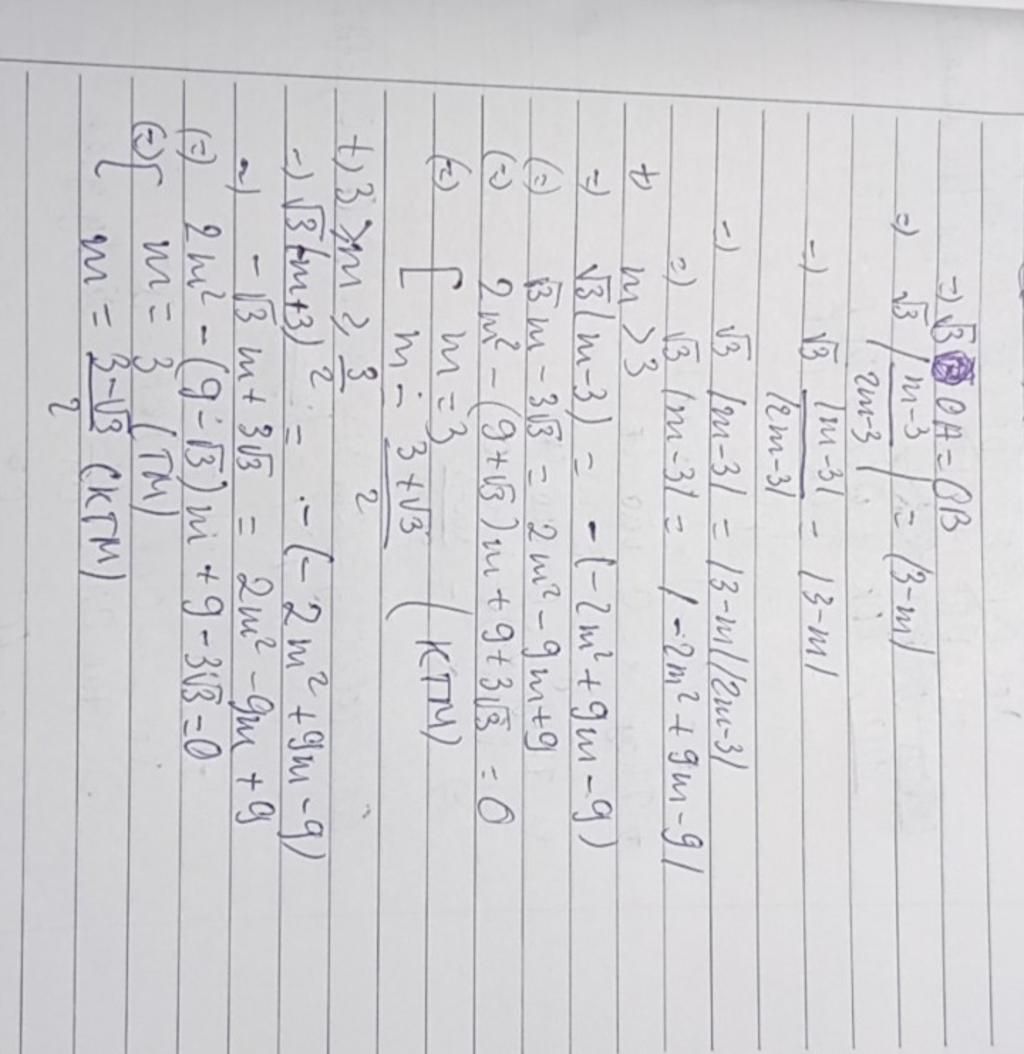 =) √3 OA = OB
=) √3 |m-3 / 2m-3| = |3-m|
=) √3 |m-3| / |2m-3| = |3-m|
=) √3 |m-3| = |3-m||2m-3|
=) √3 |m-3| = |-2m² + 9m - 9|
+) m > 3
=) √3(m-3) = -(-2m² + 9m - 9)
(=) √3m - 3√3 = 2m² - 9m + 9
(=) 2m² - (9+√3)m + 9 + 3√3 = 0
(=) [ m = 3
m = 3+√3 / 2 (KTM)
+) 3 ≥ m ≥ 3/2
=) √3(-m+3) = -(-2m² + 9m - 9)
=) -√3m + 3√3 = 2m² - 9m + 9
(=) 2m² - (9-√3)m + 9 - 3√3 = 0
(=) [ m = 3 (TM)
m = 3-√3 / 2 (KTM)